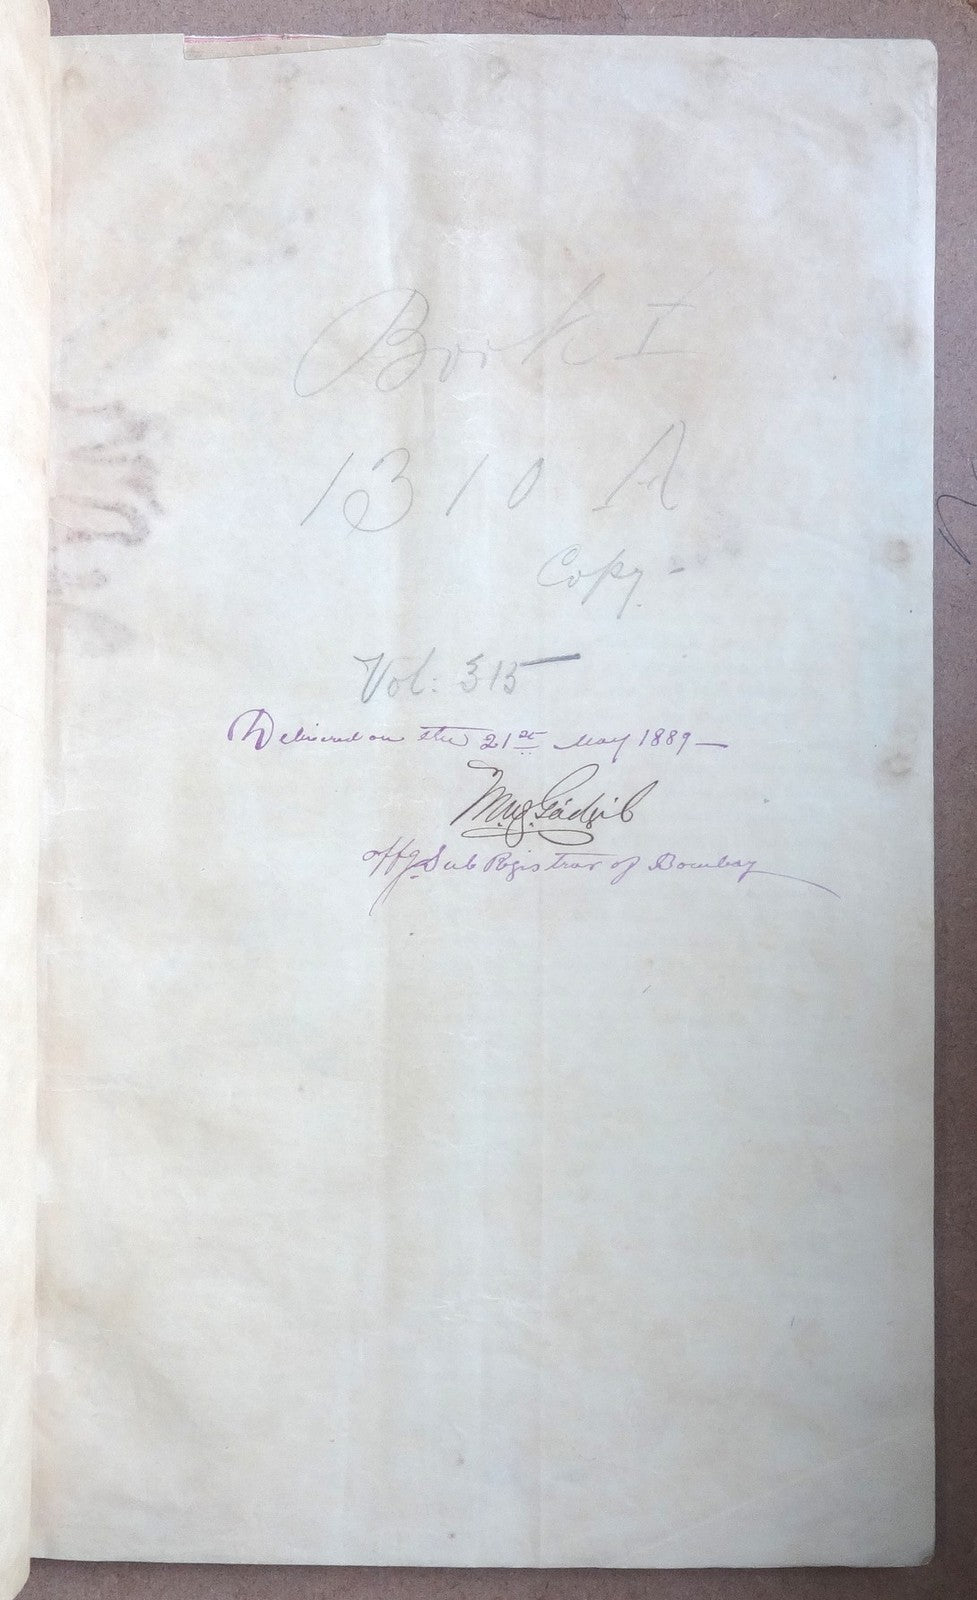 Book I
1310 A
Copy -
Vol: 315
Delivered on the 21st May 1889 —
Offg. Sub Registrar of Bombay